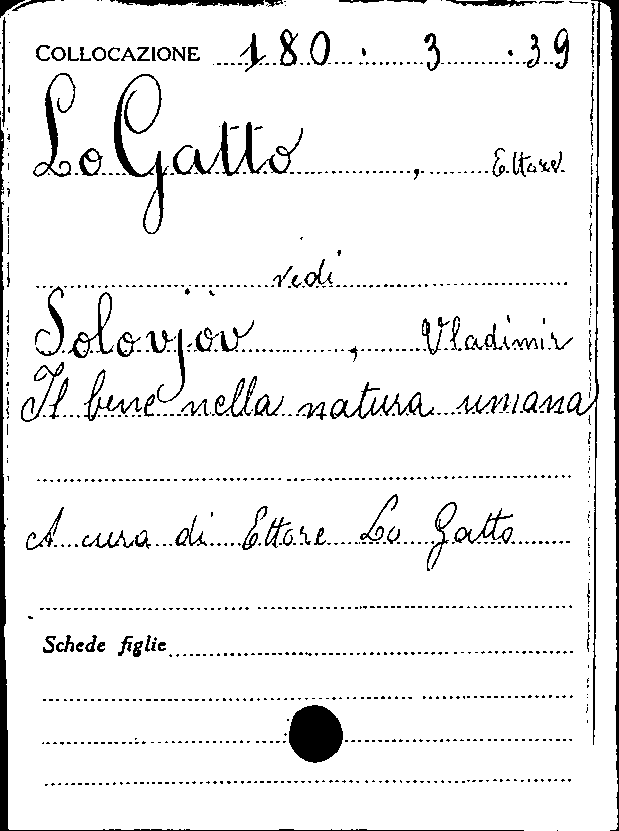 COLLOCAZIONE 180 . 3 . 39
Lo Gatto , Ettore
vedi
Solovjòv , Vladimir
Il bene nella natura umana
A cura di Ettore Lo Gatto
Schede figlie